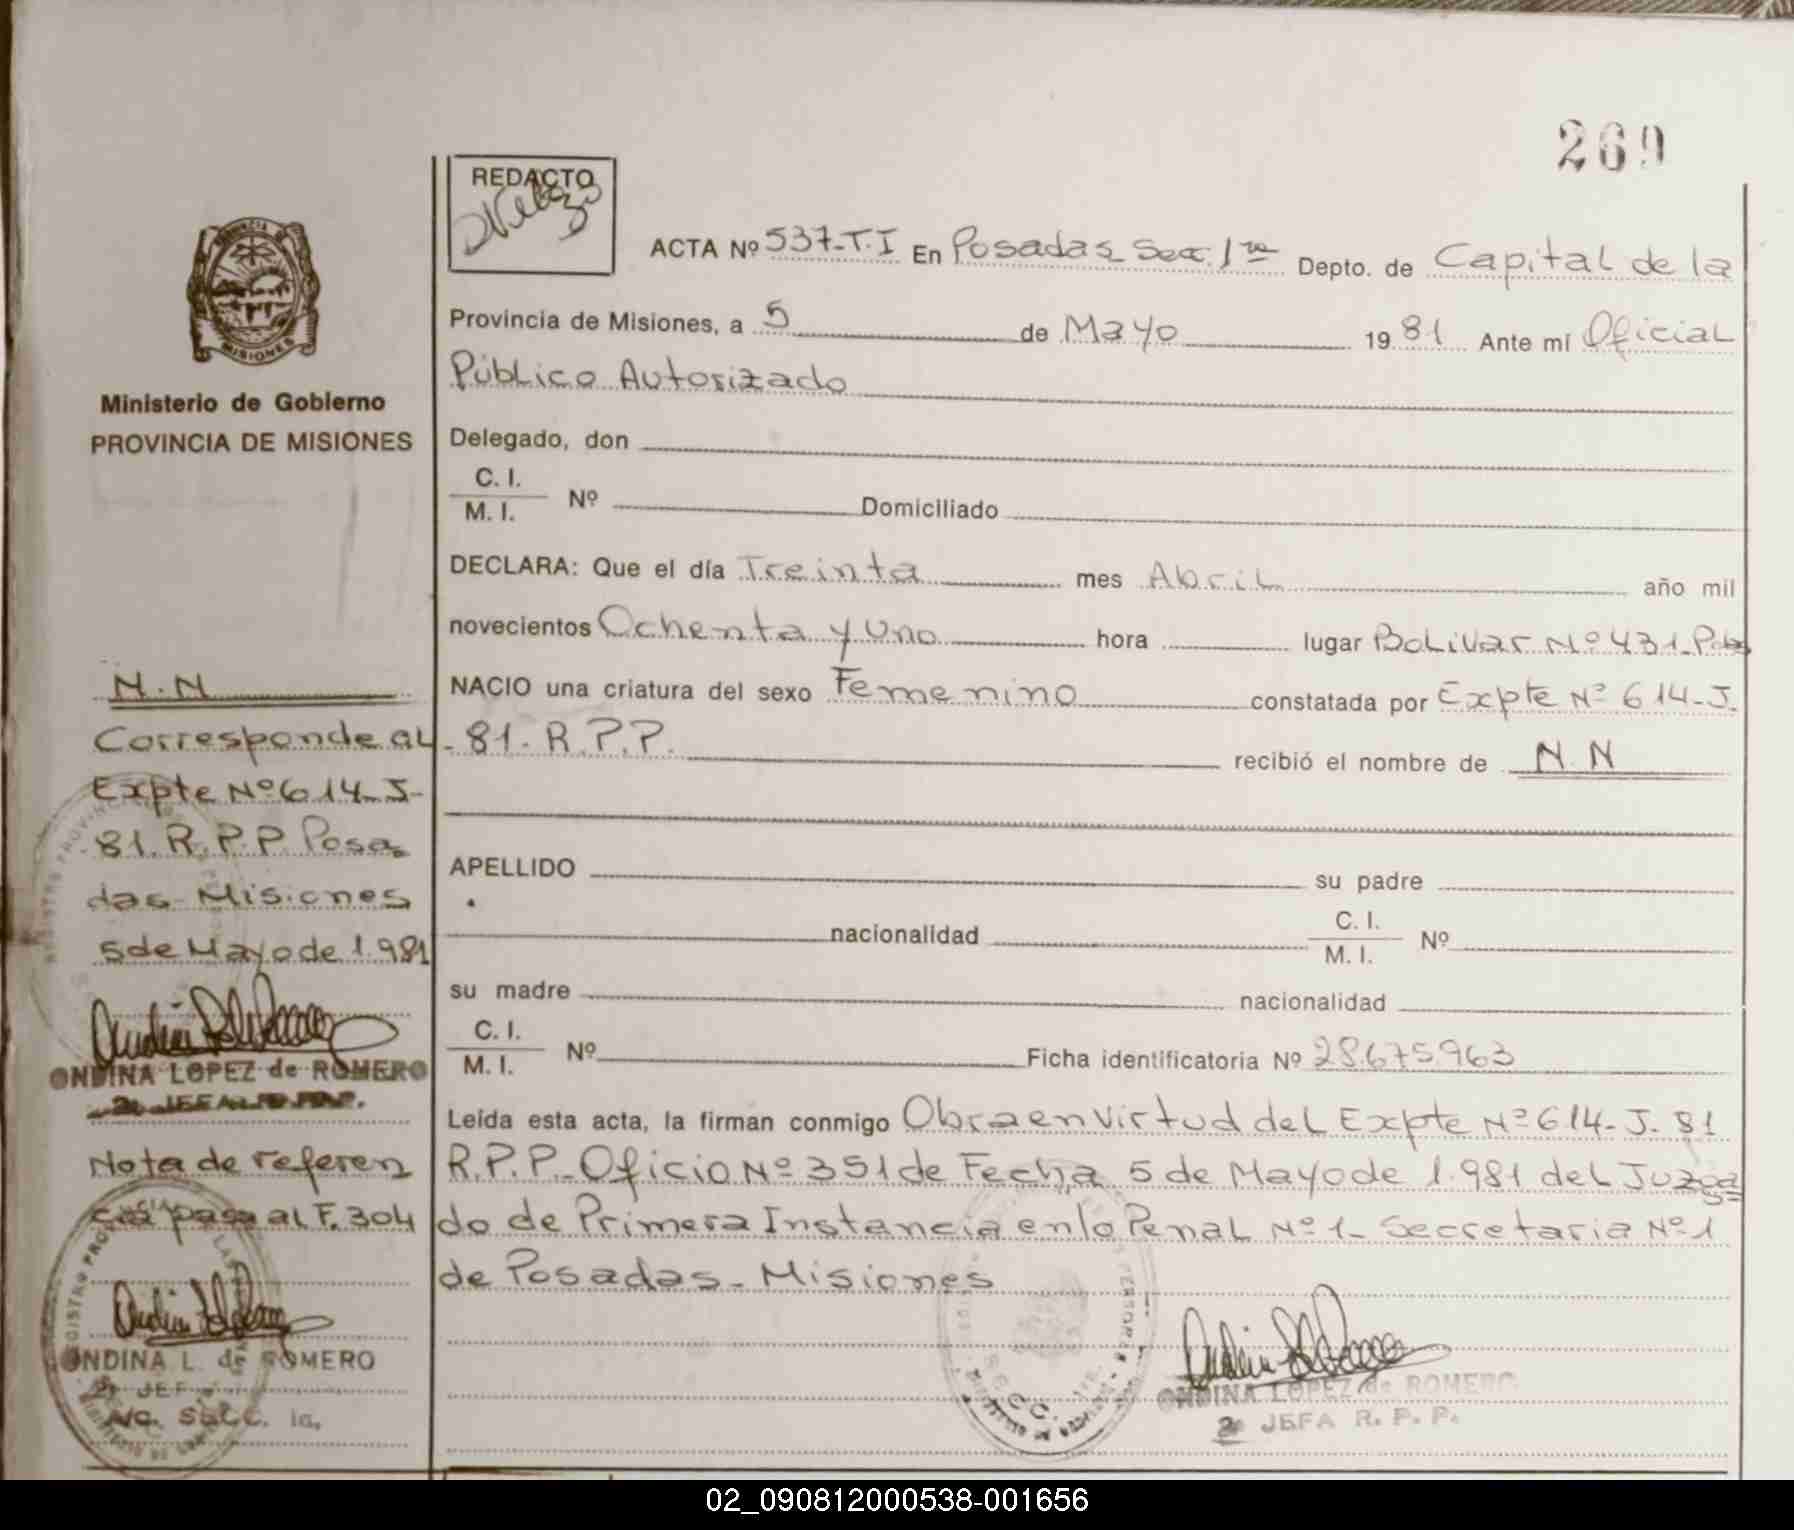 269
REDACTO
ACTA Nº 537-T.I En Posadas Secc. 1ra Depto. de Capital de la
Provincia de Misiones, a 5 de Mayo 1981 Ante mí Oficial
Público Autorizado
Delegado, don
C. I.
M. I. Nº Domiciliado
DECLARA: Que el día Treinta mes Abril año mil
novecientos Ochenta y Uno hora lugar Bolivar Nº 431. Pdas
NACIO una criatura del sexo Femenino constatada por Expte Nº 614-J.
-81. R.P.P. recibió el nombre de N. N
APELLIDO su padre
nacionalidad C. I.
M. I. Nº
su madre nacionalidad
C. I.
M. I. Nº Ficha identificatoria Nº 28.675.963
Leída esta acta, la firman conmigo Obra en virtud del Expte Nº 614-J-81
R.P.P. Oficio Nº 351 de Fecha 5 de Mayo de 1.981 del Juzga
do de Primera Instancia en lo Penal Nº 1- Secretaria Nº 1
de Posadas- Misiones
ONDINA LOPEZ de ROMERO
2a JEFA R. P. P.
PROVINCIA DE
MISIONES
Ministerio de Gobierno
PROVINCIA DE MISIONES
N. N
Corresponde al
Expte Nº 614-J-
81. R.P.P. Posa
das- Misiones
5 de Mayo de 1.981
ONDINA LOPEZ de ROMERO
2a JEFA R. P. P.
Nota de referen
cia pasa al F. 304
ONDINA L. de ROMERO
2a JEF
A/C. SECC. 1a.
02_090812000538-001656